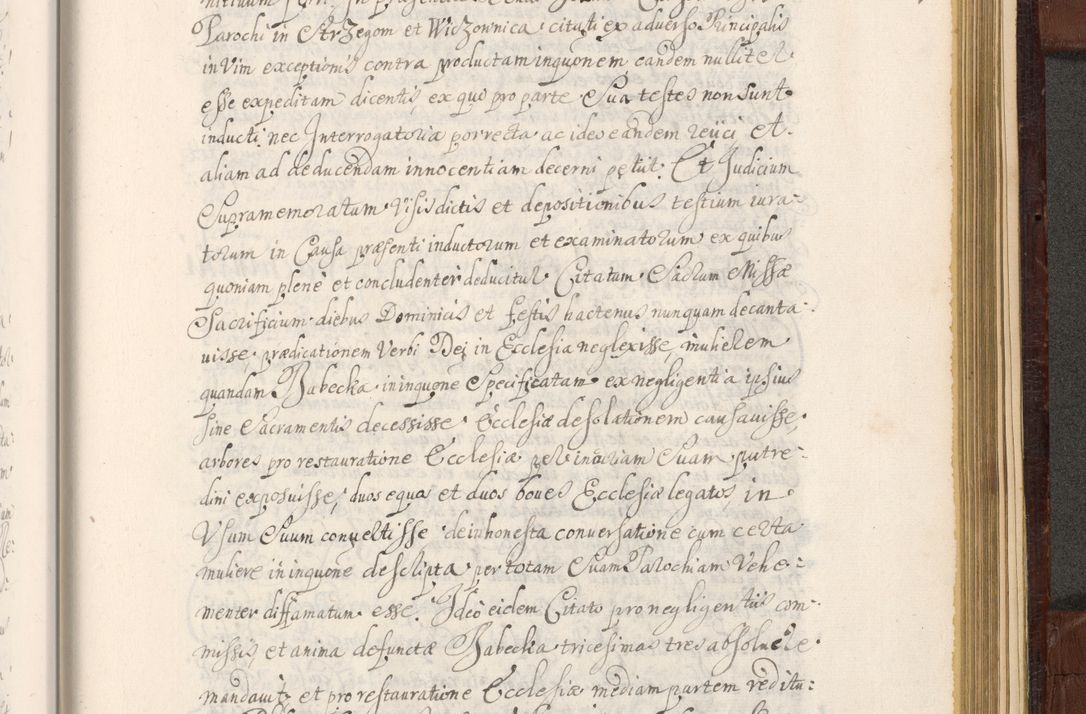 Parochi in Strzegom et Widzownica citati ex adverso Principalis
in vim exceptionis contra productam inquonem eandem nullit er
esse expeditam dicentis ex quo pro parte Sua testes non sunt
inducti, nec Interrogatoria porrecta ac ideo eandem reiici et
aliam ad deducendam innocentiam decerni petiit: Et Judicium
Supramemoratum Visis dictis et depositionibus testium iura-
torum in Causa præsenti inductorum et examinatorum ex quibus
quoniam plenè et concludenter deducitur Citatum Sacrum Missæ
Sacrificium diebus Dominicis et festis hactenus nunquam decanta-
uisse, prædicationem Verbi Dei in Ecclesia neglexisse, mulierem
quandam Babecka in inquone Specificatam ex negligentia ipsius
sine Sacramentis decessisse Ecclesiæ desolationem causauisse,
arbores pro restauratione Ecclesiæ per incuriam Suam putre-
dini exposuisse, duos equos et duos boues Ecclesiæ legatos in
Vsum Suum convertisse de inhonesta conversatione cum certa
muliere in inquone descripta per totam Suam Parochiam Vehe-
menter diffamatum esse. Ideo eidem Citato pro negligentiis com-
missis et anima defunctæ Babecka tricesimas tres absoluere
mandauit et pro restauratione Ecclesiæ mediam partem reditu-